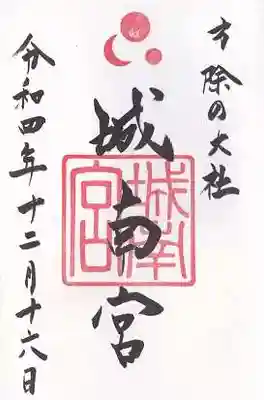 方除の大社
城南宮
城南宮
令和四年十二月十六日